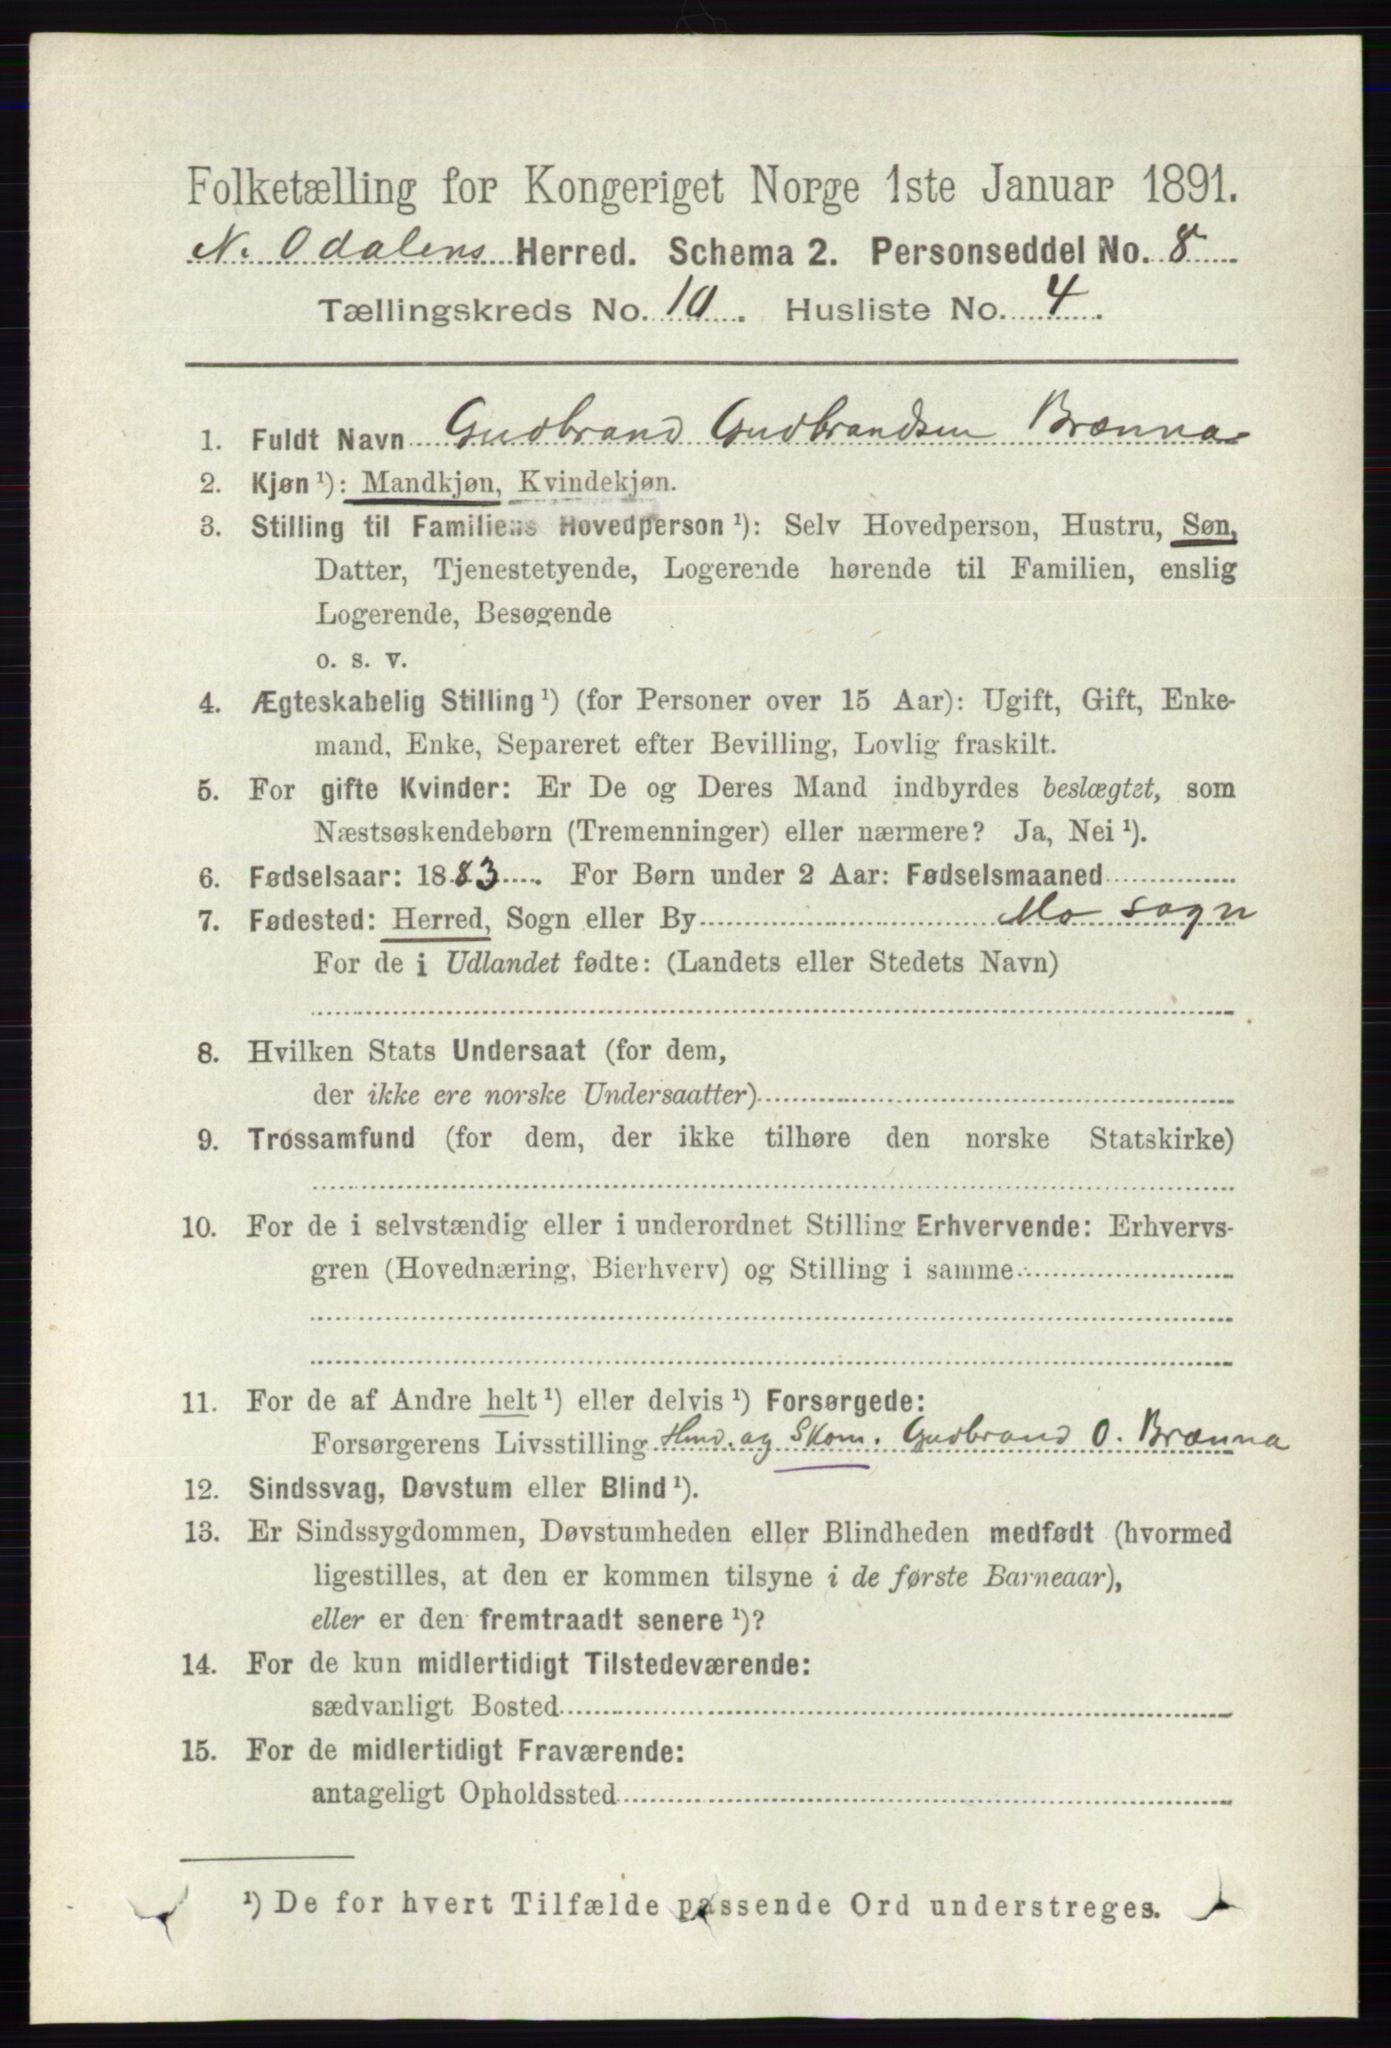 Folketælling for Kongeriget Norge 1ste Januar 1891.
N. Odalens Herred. Schema 2. Personseddel No. 8
Tællingskreds No. 10. Husliste No. 4.
1. Fuldt Navn Gudbrand Gudbrandsen Brænna
2. Kjøn ¹): Mandkjøn, Kvindekjøn.
3. Stilling til Familiens Hovedperson ¹): Selv Hovedperson, Hustru, Søn,
Datter, Tjenestetyende, Logerende hørende til Familien, enslig
Logerende, Besøgende
o. s. v.
4. Ægteskabelig Stilling ¹) (for Personer over 15 Aar): Ugift, Gift, Enke-
mand, Enke, Separeret efter Bevilling, Lovlig fraskilt.
5. For gifte Kvinder: Er De og Deres Mand indbyrdes beslægtet, som
Næstsøskendebørn (Tremenninger) eller nærmere? Ja, Nei ¹).
6. Fødselsaar: 1883. For Børn under 2 Aar: Fødselsmaaned
7. Fødested: Herred, Sogn eller By Mo sogn
For de i Udlandet fødte: (Landets eller Stedets Navn)
8. Hvilken Stats Undersaat (for dem,
der ikke ere norske Undersaatter)
9. Trossamfund (for dem, der ikke tilhøre den norske Statskirke)
10. For de i selvstændig eller i underordnet Stilling Erhvervende: Erhvervs-
gren (Hovednæring, Bierhverv) og Stilling i samme
11. For de af Andre helt ¹) eller delvis ¹) Forsørgede:
Forsørgerens Livsstilling Hmd. og Skom. Gudbrand O. Brænna
12. Sindssvag, Døvstum eller Blind ¹).
13. Er Sindssygdommen, Døvstumheden eller Blindheden medfødt (hvormed
ligestilles, at den er kommen tilsyne i de første Barneaar),
eller er den fremtraadt senere ¹)?
14. For de kun midlertidigt Tilstedeværende:
sædvanligt Bosted
15. For de midlertidigt Fraværende:
antageligt Opholdssted
¹) De for hvert Tilfælde passende Ord understreges.